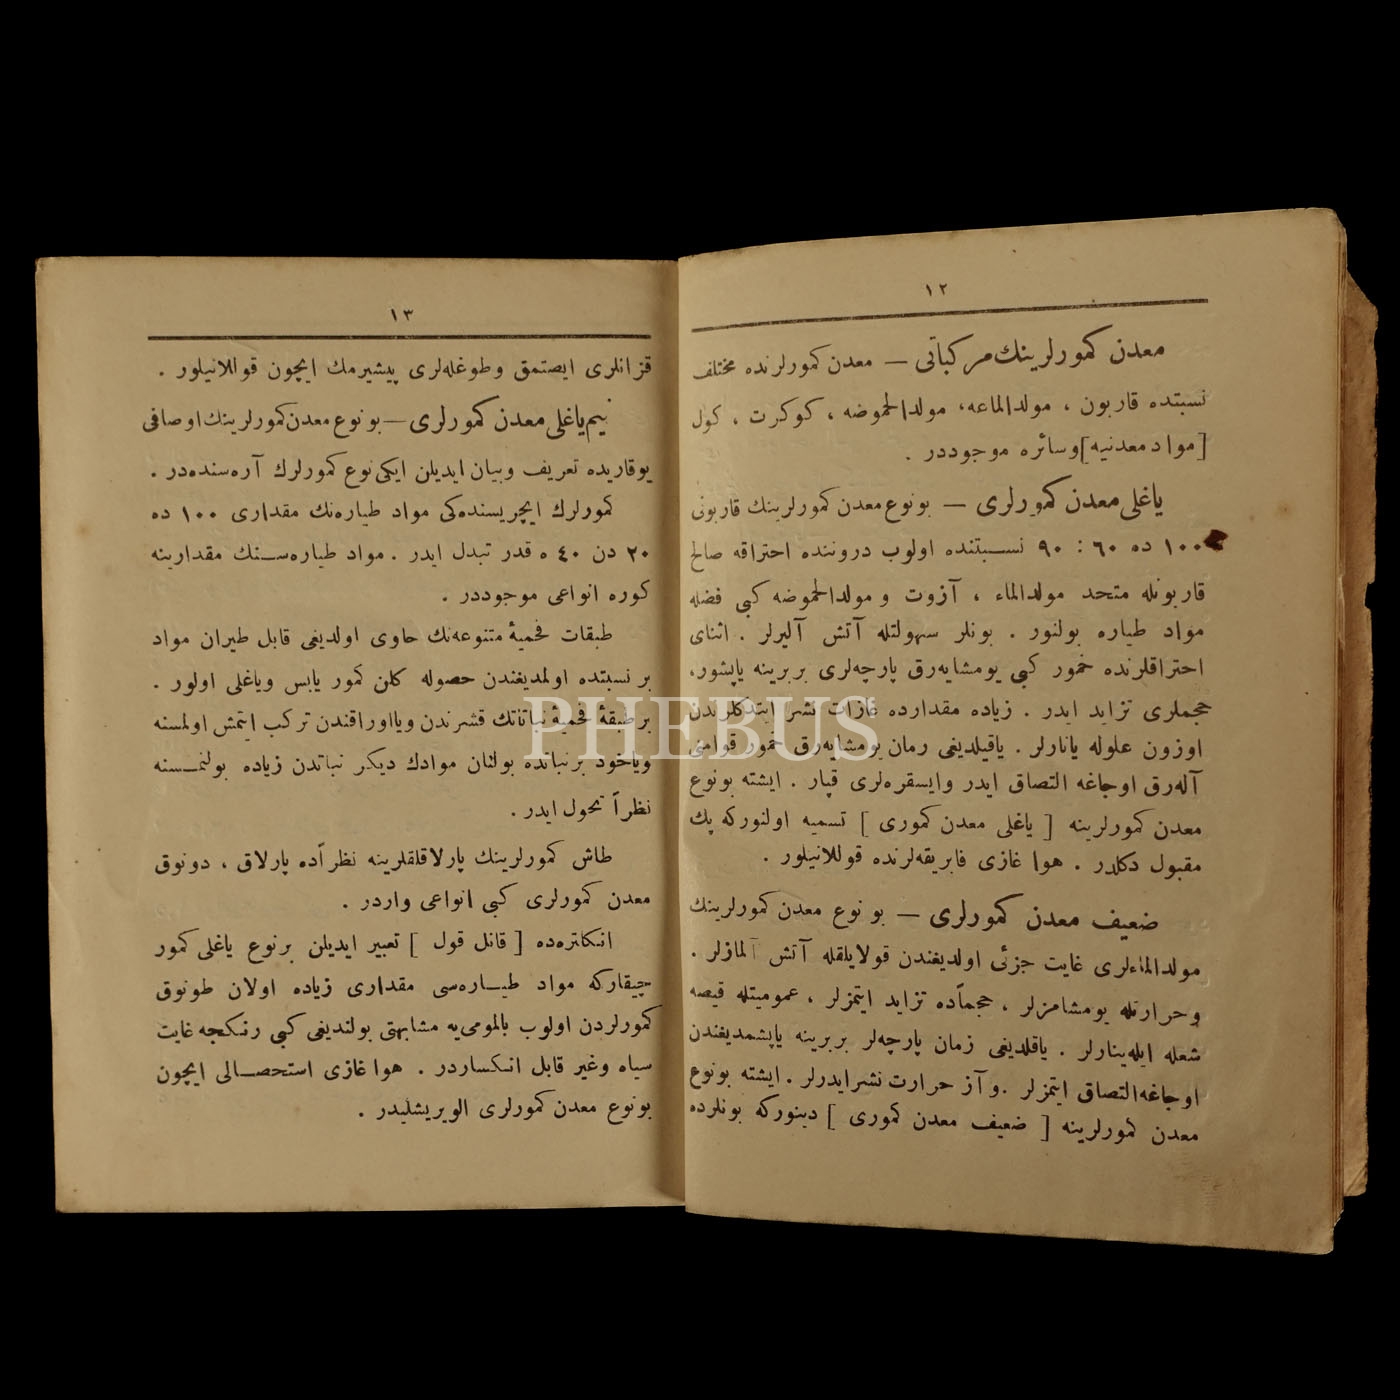 ١٢
معدن كمورلرينك مركباتى — معدن كمورلرنده مختلف
نسبتده قاربون ، مولدالماعه، مولدالحموضه ، كوكرت ، كول
[مواد معدنيه] وسائره موجوددر .
ياغلى معدن كمورلرى — بو نوع معدن كمورلرينك قاربونى
١٠٠ ده ٦٠ : ٩٠ نسبتنده اولوب دروننده احتراقه صالح
قاربونله متحد مولدالماء ، آزوت و مولدالحموضه كبى فضله
مواد طياره بولنور . بونلر سهولتله آتش آليرلر . اثناى
احتراقلرنده خمور كبى يومشايه‌رق پارچه‌لرى بربرينه ياپشور،
حجملرى تزايد ايدر . زياده مقدارده غازات نشر ايتدكلرندن
اوزون علوله يانارلر . ياقيلديغى زمان يومشايه‌رق خمور قوامنى
آله‌رق اوجاغه التصاق ايدر وايسقره‌لرى قپار . ايشته بونوع
معدن كمورلرينه [ ياغلى معدن كمورى ] تسميه اولنوركه پك
مقبول دكلدر . هوا غازى فابريقه‌لرنده قوللانيلور .
ضعيف معدن كمورلرى — بو نوع معدن كمورلرينك
مولدالماءلرى غايت جزئى اولديغندن قولايلقله آتش آلمازلر .
وحرارتله يومشامزلر ، حجماً ده تزايد ايتمزلر ، عموميتله قيصه
شعله ايله‌ينارلر . ياقلديغى زمان پارچه‌لر بربرينه ياپشمديغندن
اوجاغه التصاق ايتمزلر . و آز حرارت نشر ايدرلر . ايشته بونوع
معدن كمورلرينه [ ضعيف معدن كمورى ] دينوركه بونلرده
١٣
قزانلرى ايصتمق و طوغله‌لرى پيشيرمك ايچون قوللانيلور .
نيم ياغلى معدن كمورلرى — بو نوع معدن كمورلرينك اوصافى
يوقاريده تعريف وبيان ايديلن ايكى نوع كمورلرك آره‌سنده‌در .
كمورلرك ايچريسنده‌كى مواد طياره‌نك مقدارى ١٠٠ ده
٢٠ دن ٤٠ ه قدر تبدل ايدر . مواد طياره‌سنك مقدارينه
كوره انواعى موجوددر .
طبقات فحميهٔ متنوعه‌نك حاوى اولديغى قابل طيران مواد
بر نسبتده اولمديغندن حصوله كلن كمور يابس وياغلى اولور .
بر طبقهٔ فحميهٔ نباتاتك قشرندن ويااوراقندن تركب ايتمش اولمسنه
وياخود بر نباتده بولنان موادك ديكر نباتدن زياده بولنمسنه
نظراً تحول ايدر .
طاش كمورلرينك پارلاقلقلرينه نظراً ده پارلاق ، دونوق
معدن كمورلرى كبى انواعى واردر .
انكلتره‌ده [ قانل قول ] تعبير ايديلن بر نوع ياغلى كمور
چيقاركه مواد طياره‌سى مقدارى زياده اولان طونوق
كمورلردن اولوب بالمومى‌يه مشابهتى بولنديغى كبى رنكجه غايت
سياه وغير قابل انكساردر . هوا غازى استحصالى ايچون
بونوع معدن كمورلرى الويريشليدر .
PHEBUS